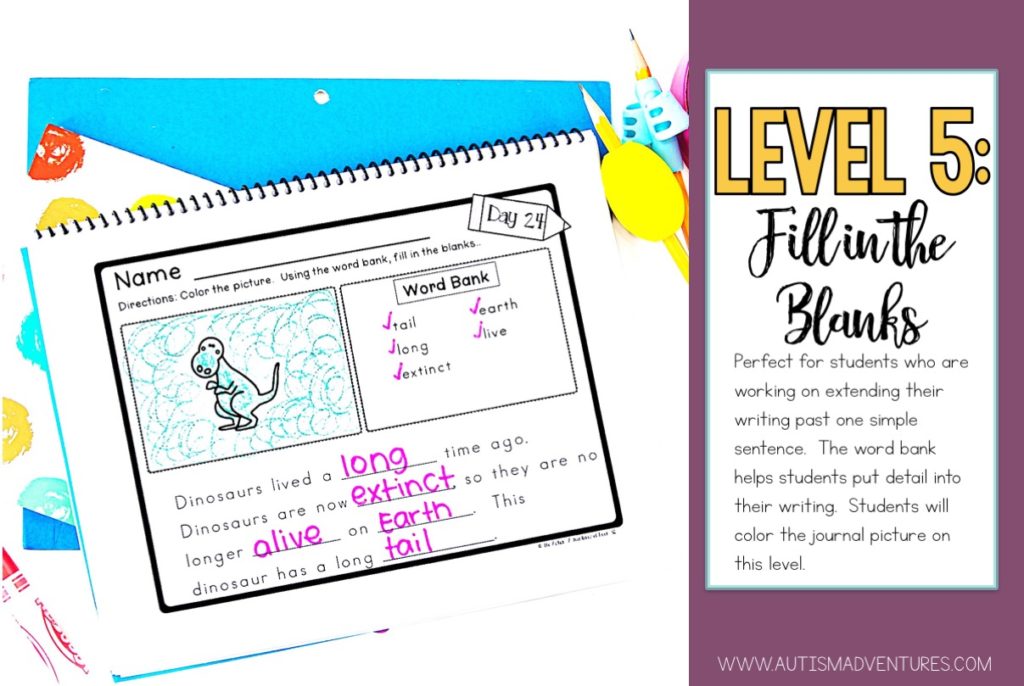 Day 24
Name
Directions: Color the picture. Using the word bank, fill in the blanks..
Word Bank
tail
long
extinct
earth
live
Dinosaurs lived a long time ago.
Dinosaurs are now extinct, so they are no
longer alive on Earth. This
dinosaur has a long tail.
LEVEL 5:
Fill in the
Blanks
Perfect for students who are
working on extending their
writing past one simple
sentence. The word bank
helps students put detail into
their writing. Students will
color the journal picture on
this level.
WWW.AUTISMADVENTURES.COM